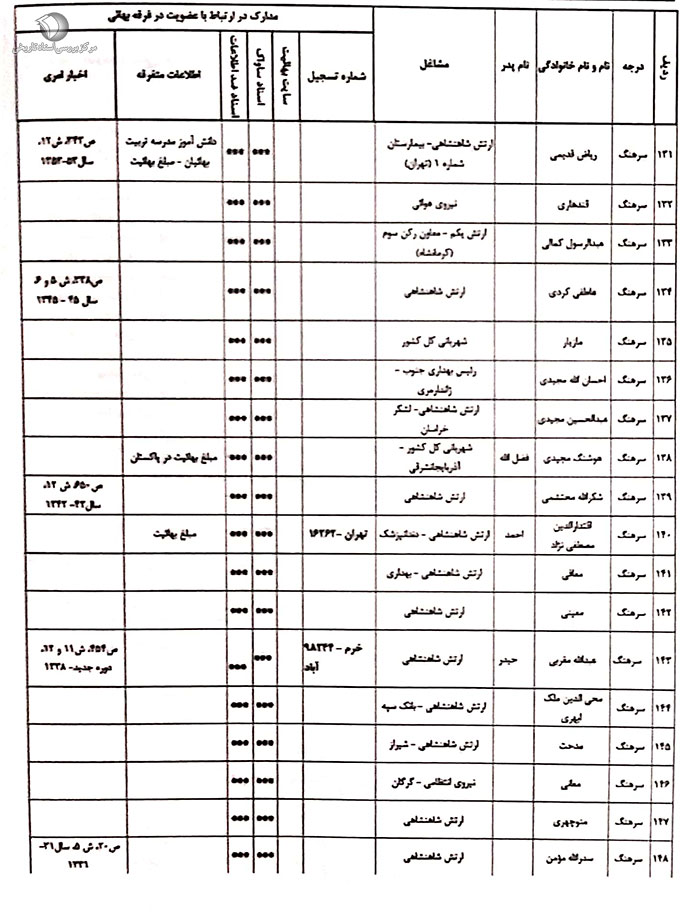 مرکز بررسی اسناد تاریخی
مدارک در ارتباط با عضویت در فرقه بهائی
ردیف درجه نام و نام خانوادگی نام پدر مشاغل شماره تسجیل سایت بهائیت اسناد ساواک اسناد ضد اطلاعات اطلاعات متفرقه اخبار امری
۱۳۱ سرهنگ ریاض قدیمی ارتش شاهنشاهی- بیمارستان شماره ۱ (تهران) *** *** دانش آموز مدرسه تربیت بهائیان - مبلغ بهائیت ص۳۴۲، ش۱۲، سال۵۳-۱۳۵۲
۱۳۲ سرهنگ قندهاری نیروی هوائی *** ***
۱۳۳ سرهنگ عبدالرسول کمالی ارتش یکم - معاون رکن سوم (کرمانشاه) *** ***
۱۳۴ سرهنگ عاطفی کردی ارتش شاهنشاهی *** *** ص۲۳۸، ش ۵ و ۶، سال ۴۵ - ۱۳۴۵
۱۳۵ سرهنگ مازیار شهربانی کل کشور *** ***
۱۳۶ سرهنگ احسان الله مجیدی رئیس بهداری جنوب - ژاندارمری *** ***
۱۳۷ سرهنگ عبدالحسین مجیدی ارتش شاهنشاهی- لشگر خراسان *** ***
۱۳۸ سرهنگ هوشنگ مجیدی فضل الله شهربانی کل کشور - آذربایجانشرقی *** *** مبلغ بهائیت در پاکستان
۱۳۹ سرهنگ شکرالله محتشمی ارتش شاهنشاهی *** *** ص ۶۵۰، ش ۱۲، سال۴۳- ۱۳۴۲
۱۴۰ سرهنگ اقتدارالدین مصطفی نژاد احمد ارتش شاهنشاهی - دندانپزشک تهران -۱۶۲۶۲ *** *** مبلغ بهائیت
۱۴۱ سرهنگ معافی ارتش شاهنشاهی - بهداری *** ***
۱۴۲ سرهنگ معینی ارتش شاهنشاهی *** ***
۱۴۳ سرهنگ عبدالله مقربی حیدر ارتش شاهنشاهی ۹۸۲۴۴ - خرم آباد *** *** ص۴۵۴، ش۱۱ و ۱۲، دوره جدید- ۱۳۳۸
۱۴۴ سرهنگ محی الدین ملک ابهری ارتش شاهنشاهی - بانک سپه *** ***
۱۴۵ سرهنگ مدحت ارتش شاهنشاهی - شیراز *** ***
۱۴۶ سرهنگ معانی نیروی انتظامی - گرگان *** ***
۱۴۷ سرهنگ منوچهری ارتش شاهنشاهی *** ***
۱۴۸ سرهنگ سدرالله مؤمن ارتش شاهنشاهی *** *** ص۲۰، ش ۵، سال۲۱- ۱۳۳۱